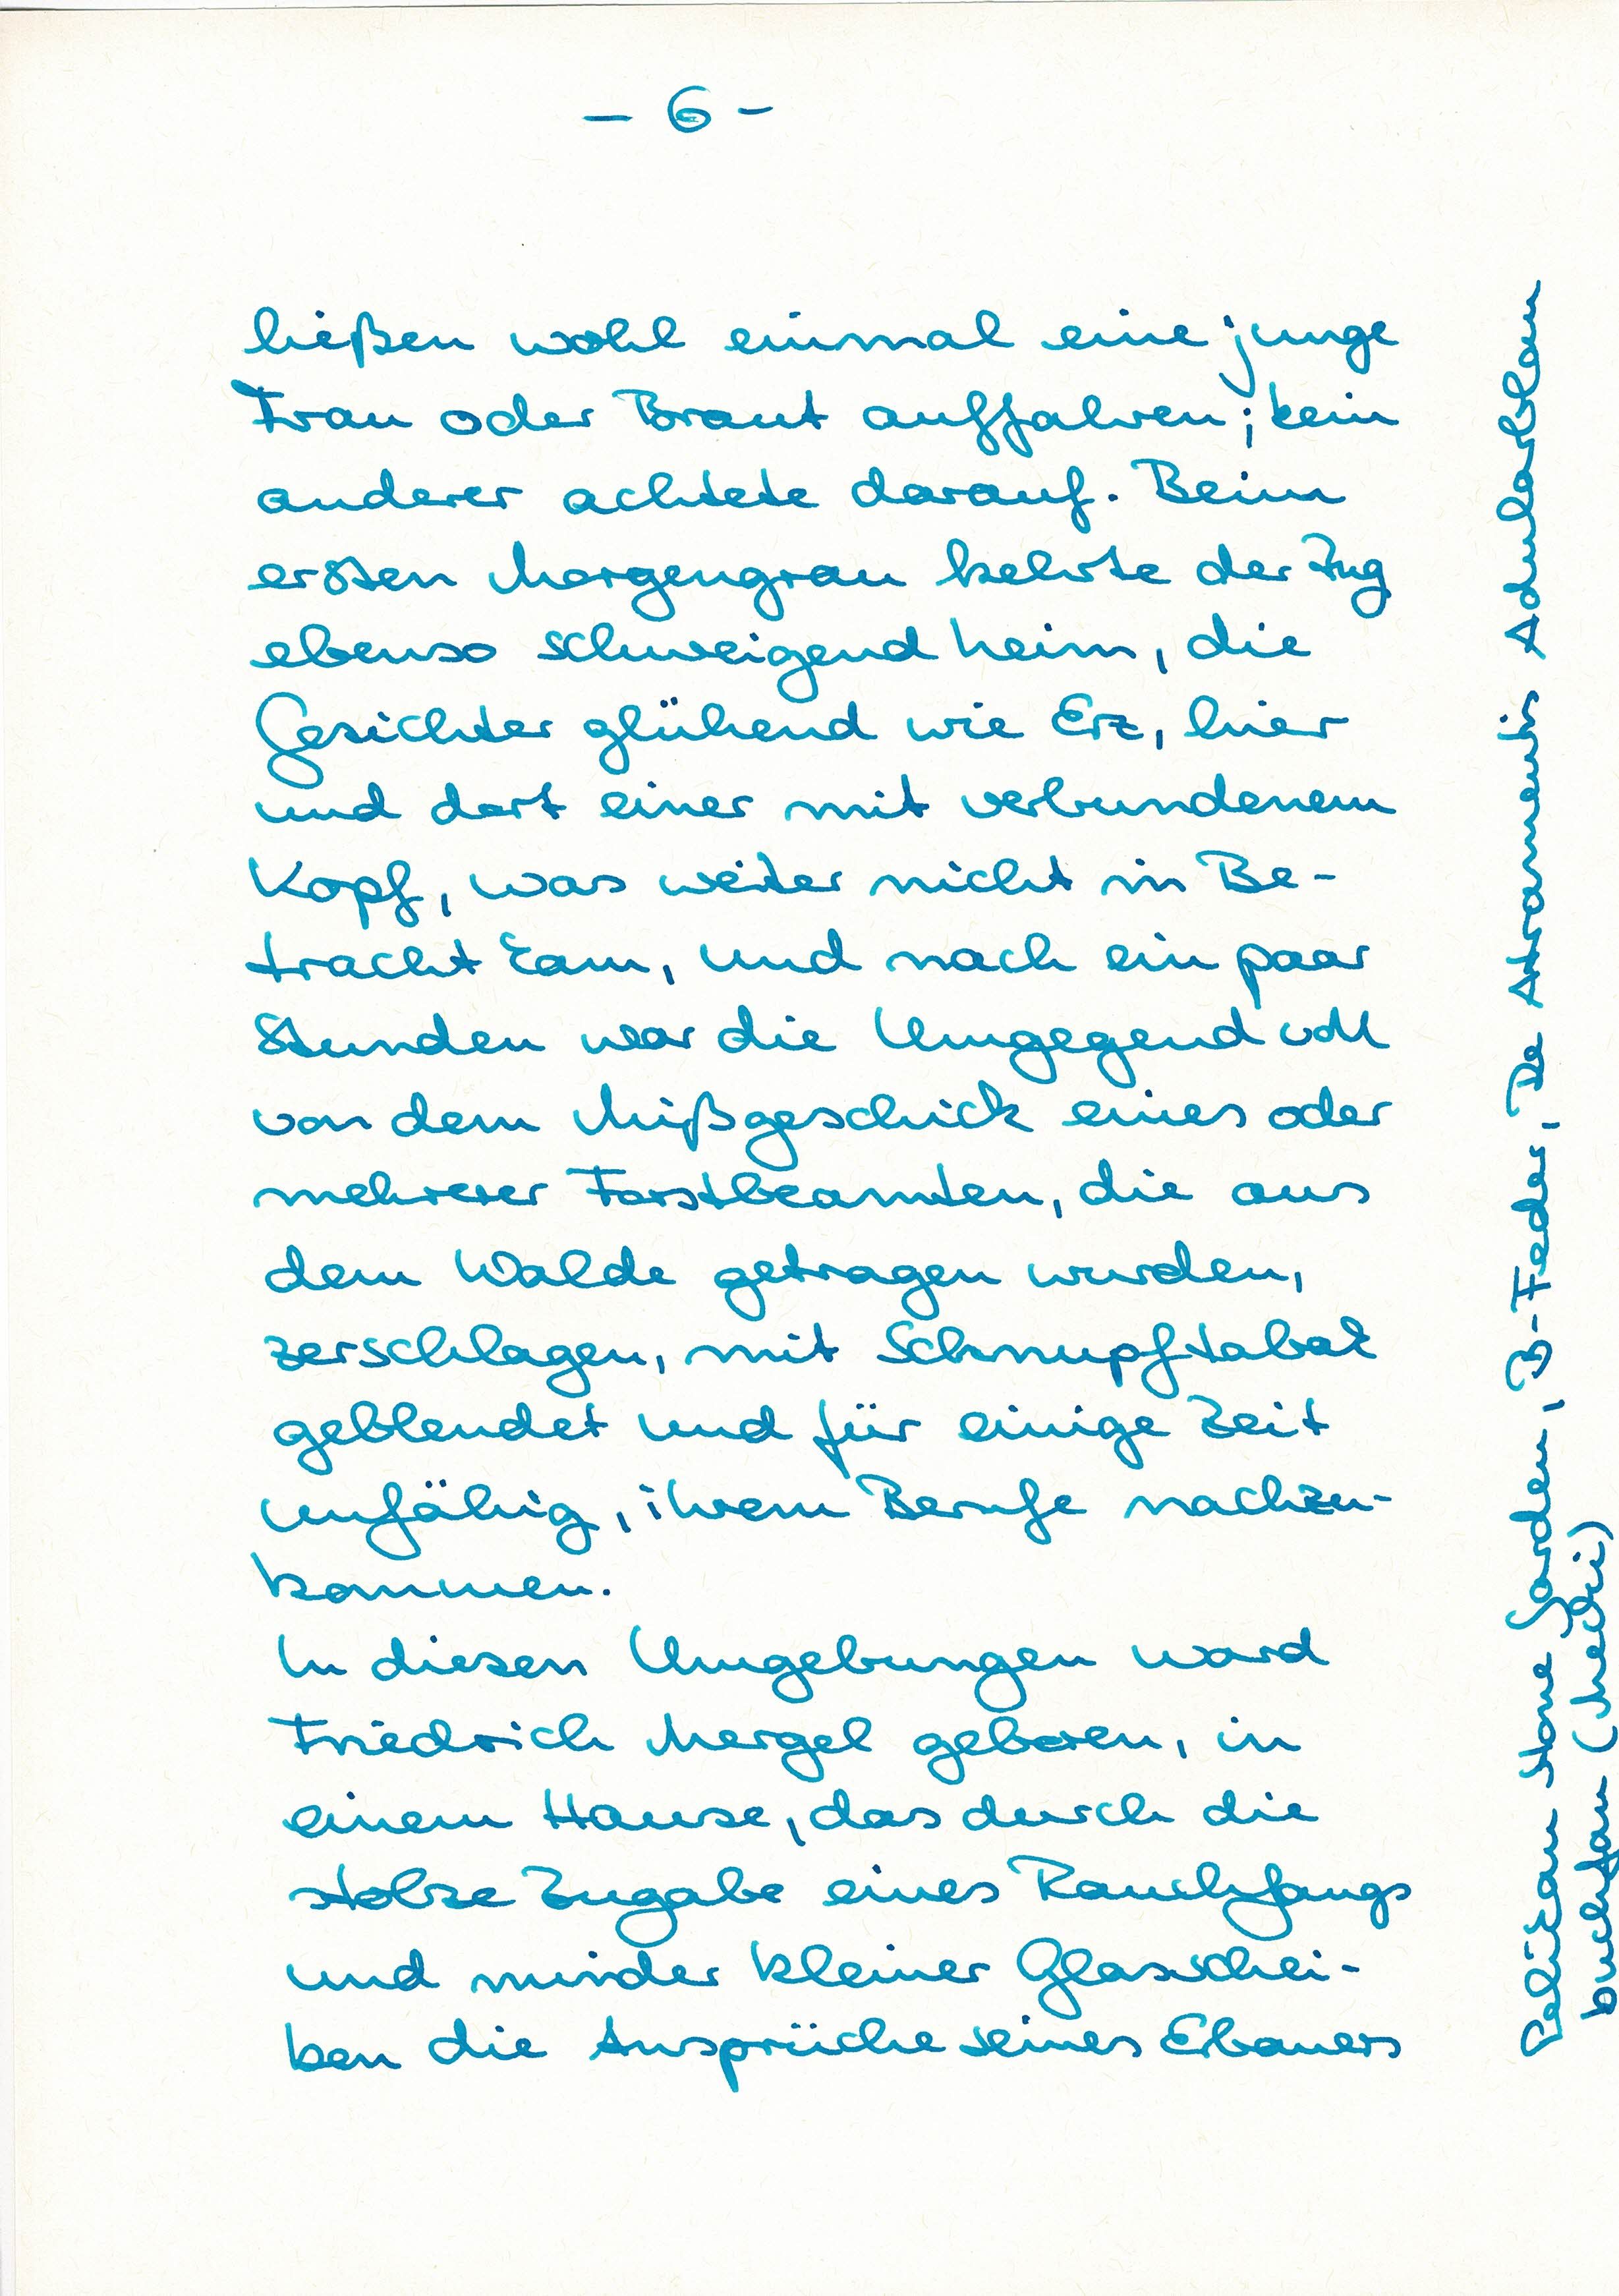 – 6 –
ließen wohl einmal eine junge
Frau oder Braut auffahren; kein
anderer achtete darauf. Beim
ersten Morgengrau kehrte der Zug
ebenso schweigend heim, die
Gesichter glühend wie Erz, hier
und dort einer mit verbundenem
Kopf, was weiter nicht in Be-
tracht kam, und nach ein paar
Stunden war die Umgegend voll
von dem Mißgeschick eines oder
mehrerer Forstbeamten, die aus
dem Walde getragen wurden,
zerschlagen, mit Schnupftabak
geblendet und für einige Zeit
unfähig, ihrem Berufe nachzu-
kommen.
In diesen Umgebungen ward
Friedrich Mergel geboren, in
einem Hause, das durch die
stolze Zugabe eines Rauchfangs
und minder kleiner Glasschei-
ben die Ansprüche seines Erbauers
Pelikan Stone Garden, B-Feder, De Atramentis Adularblau
buchtan (Medii)